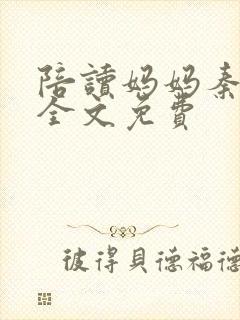 陪讀媽媽秦
全文免費
彼得貝德福德